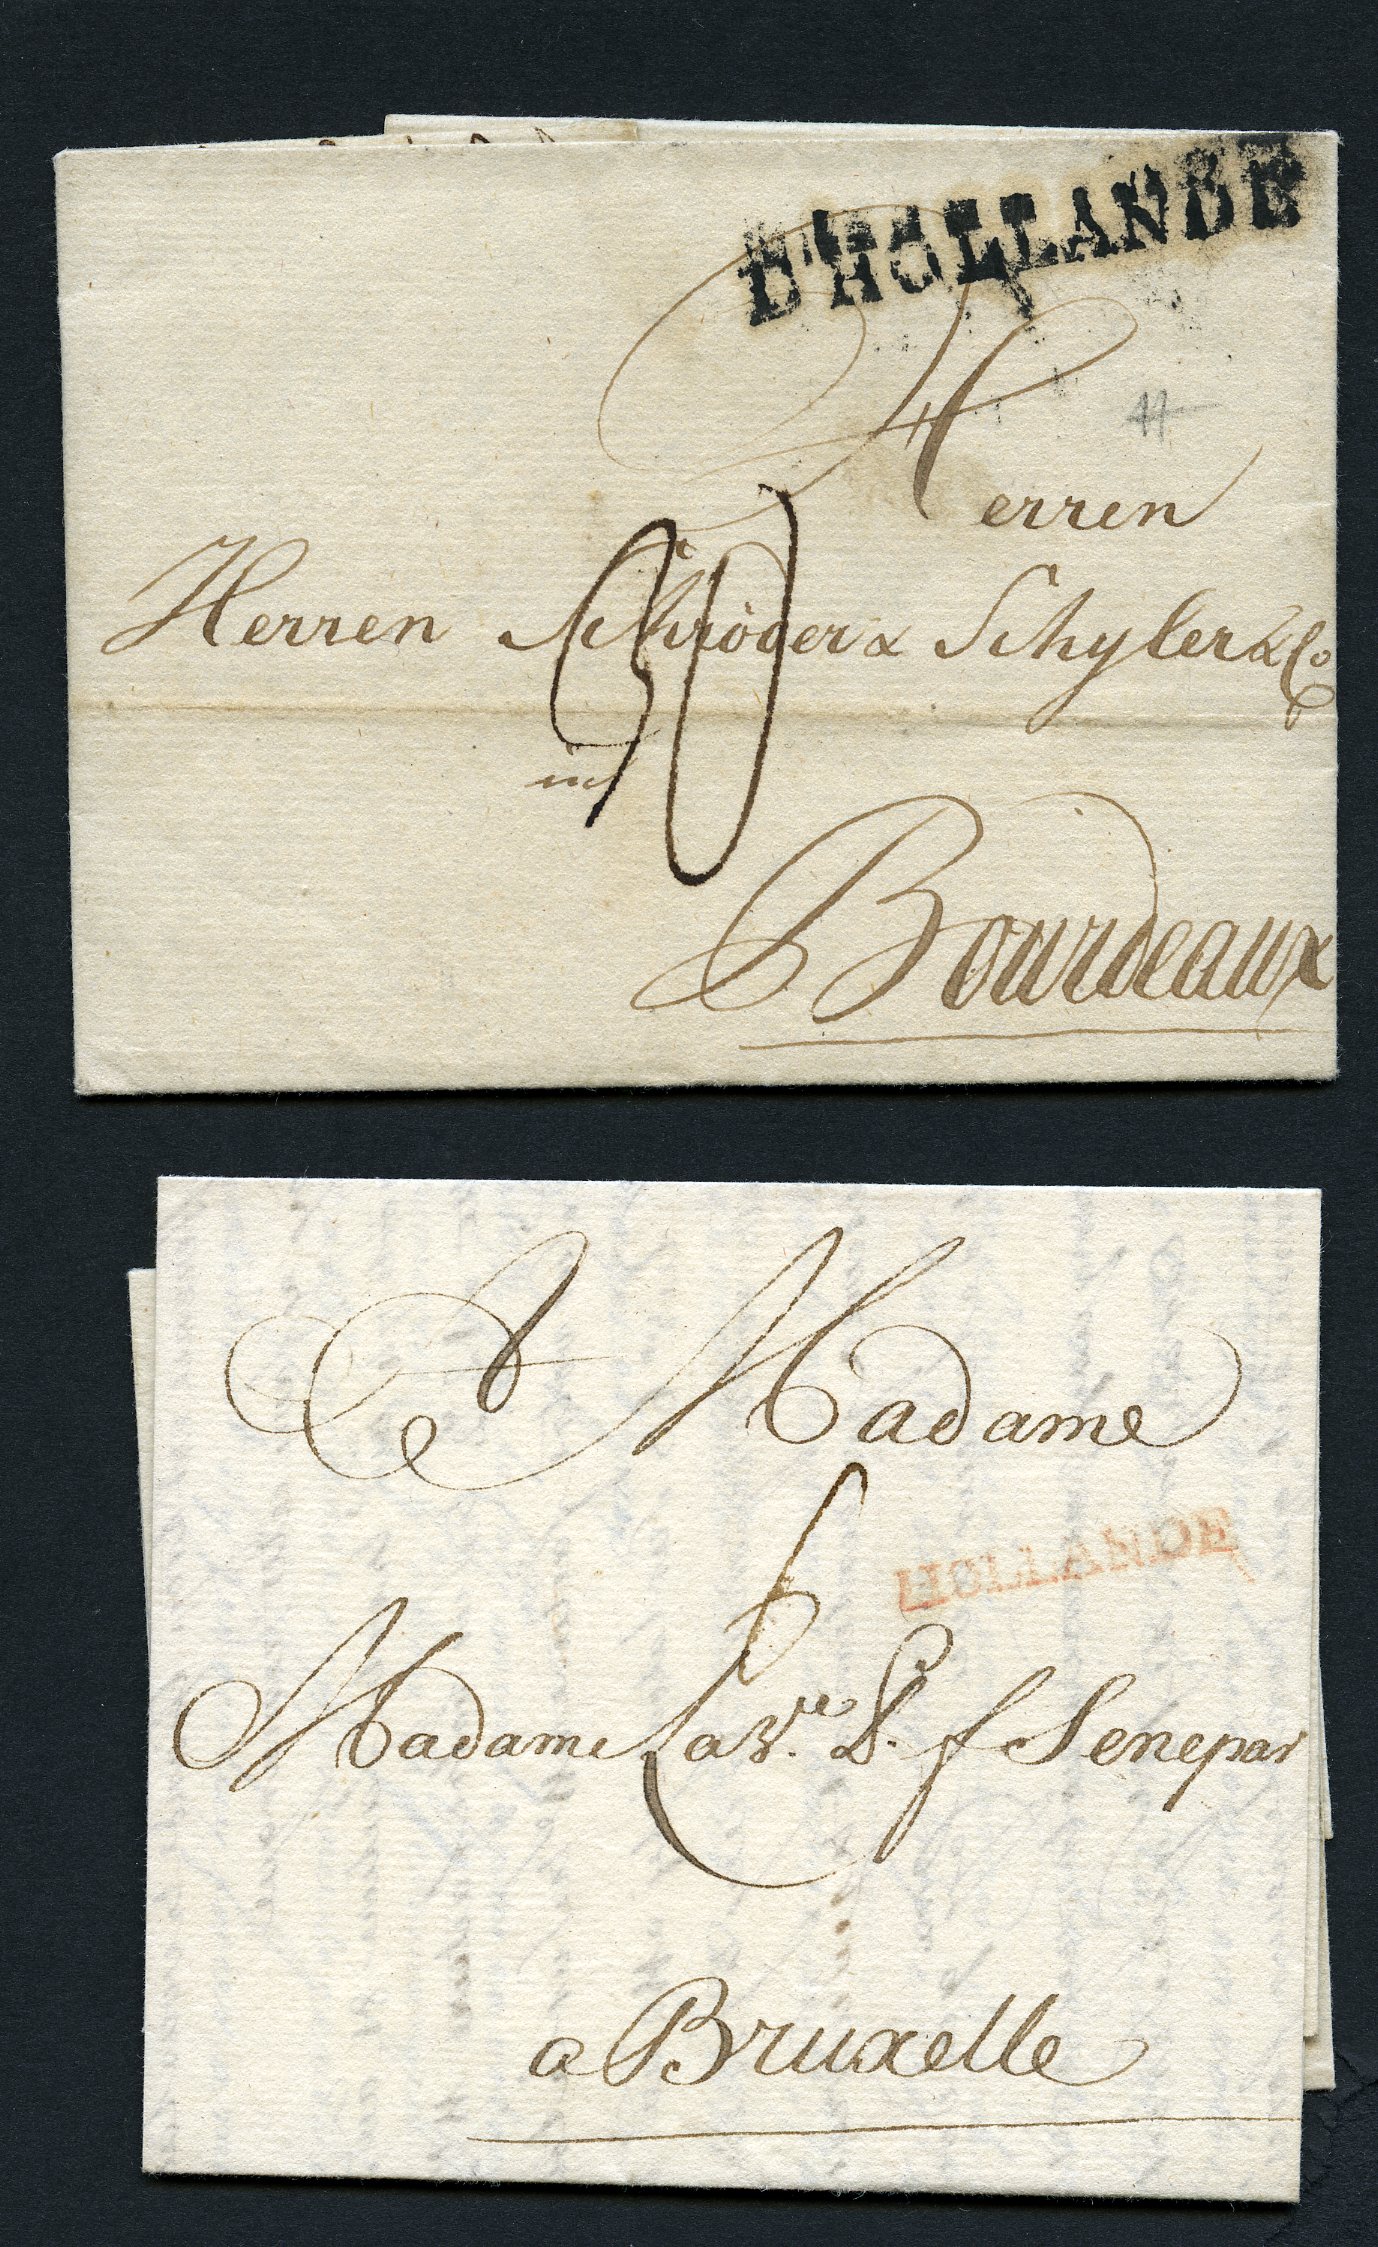 D'HOLLANDE
Herren
Herren Schröder & Schyler & Co
in
30
Bourdeaux
A Madame
HOLLANDE
6
Madame La v.ve D. f Senepar
a Bruxelle